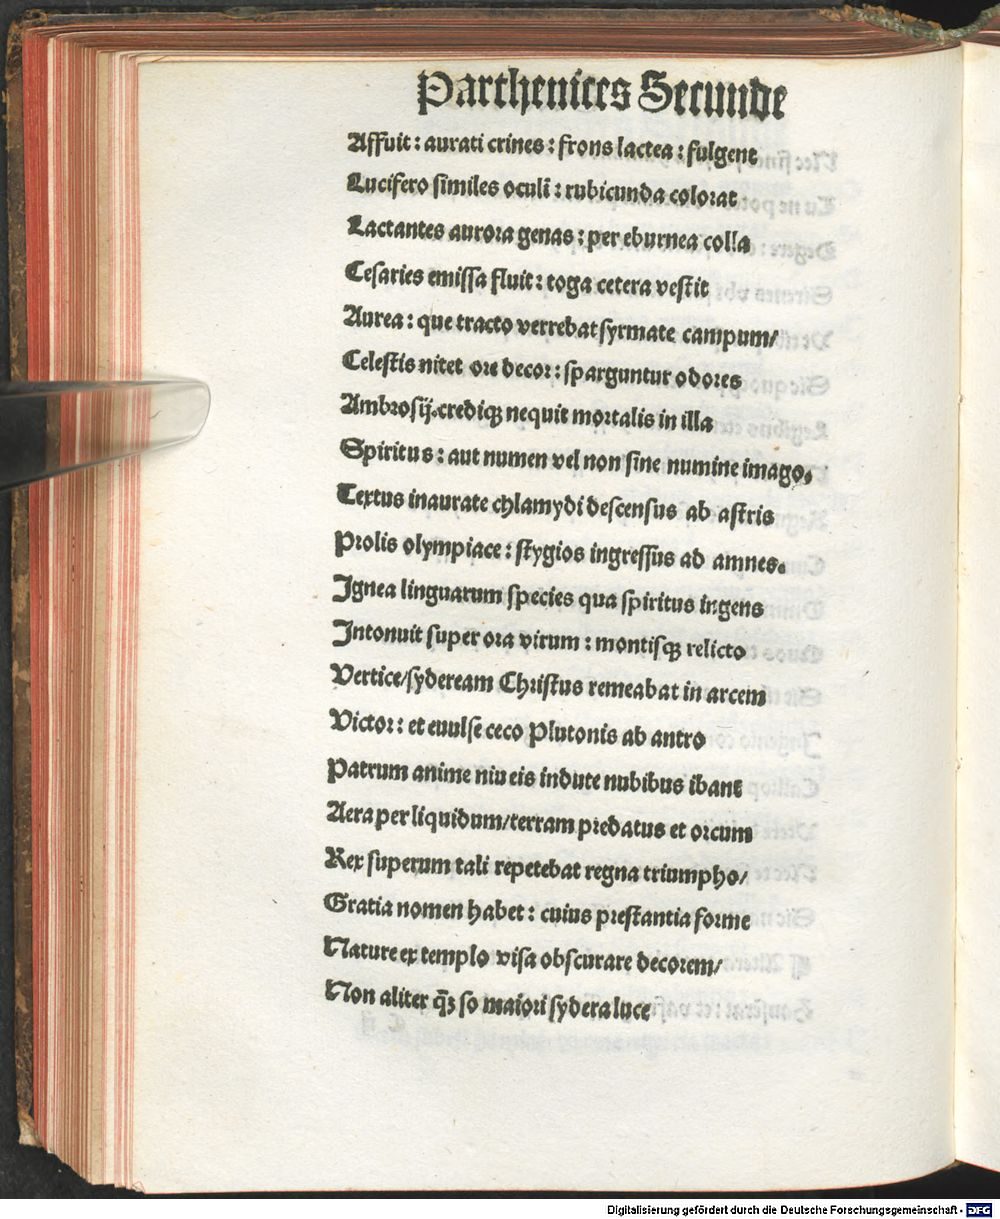 Parthenices Secunde
Affuit: aurati crines: frons lactea: fulgent
Lucifero similes oculi: rubicunda colorat
Lactantes aurora genas: per eburnea colla
Cesaries emissa fluit: toga cetera vestit
Aurea: que tracto verrebat syrmate campum/
Celestis nitet ore decor: sparguntur odores
Ambrosij. crediqꝫ nequit mortalis in illa
Spiritus: aut numen vel non sine numine imago.
Textus inaurate chlamydi descensus ab astris
Prolis olympiace: stygios ingressus ad amnes.
Ignea linguarum species qua spiritus ingens
Intonuit super ora virum: montisqꝫ relicto
Vertice/sydeream Christus remeabat in arcem
Victor: et euulse ceco Plutonis ab antro
Patrum anime niueis indute nubibus ibant
Aera per liquidum/terram predatus et orcum
Rex superum tali repetebat regna triumpho/
Gratia nomen habet: cuius prestantia forme
Nature ex templo visa obscurare decorem/
Non aliter qꝫ̃ so maiori sydera luce
Digitalisierung gefördert durch die Deutsche Forschungsgemeinschaft - DFG